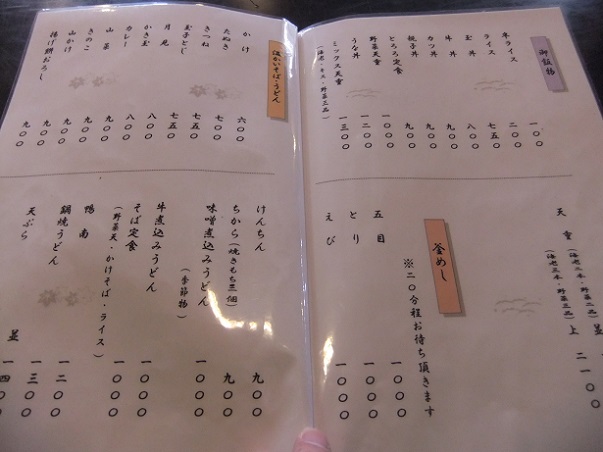 御飯物
半ライス 一〇〇
ライス 二〇〇
玉丼 七五〇
牛丼 八〇〇
カツ丼 九〇〇
親子丼 九〇〇
とろろ定食 九〇〇
野菜天重 一〇〇〇
うな丼 一二〇〇
ミックス天重 一三〇〇
(海老・キス・野菜三品)
天重 (海老二本・野菜二品) 並
(海老三本・野菜三品) 上 二一〇〇
釜めし
※二〇分程お待ち頂きます
五目 一〇〇〇
とり 一〇〇〇
えび 一〇〇〇
温かいそば・うどん
かけ 六〇〇
たぬき 七〇〇
きつね 七五〇
玉子とじ 七五〇
月見 八〇〇
かき玉 八〇〇
カレー 九〇〇
山菜 九〇〇
きのこ 九〇〇
山かけ 九〇〇
揚げ餅おろし 九〇〇
けんちん 九〇〇
ちから(焼きもち三個) 九〇〇
味噌煮込みうどん 一〇〇〇
(季節物)
牛煮込みうどん 一〇〇〇
そば定食 一〇〇〇
(野菜天・かけそば・ライス)
鴨南 一〇〇〇
鍋焼うどん 一二〇〇
天ぷら 並 一三〇〇
一四〇〇